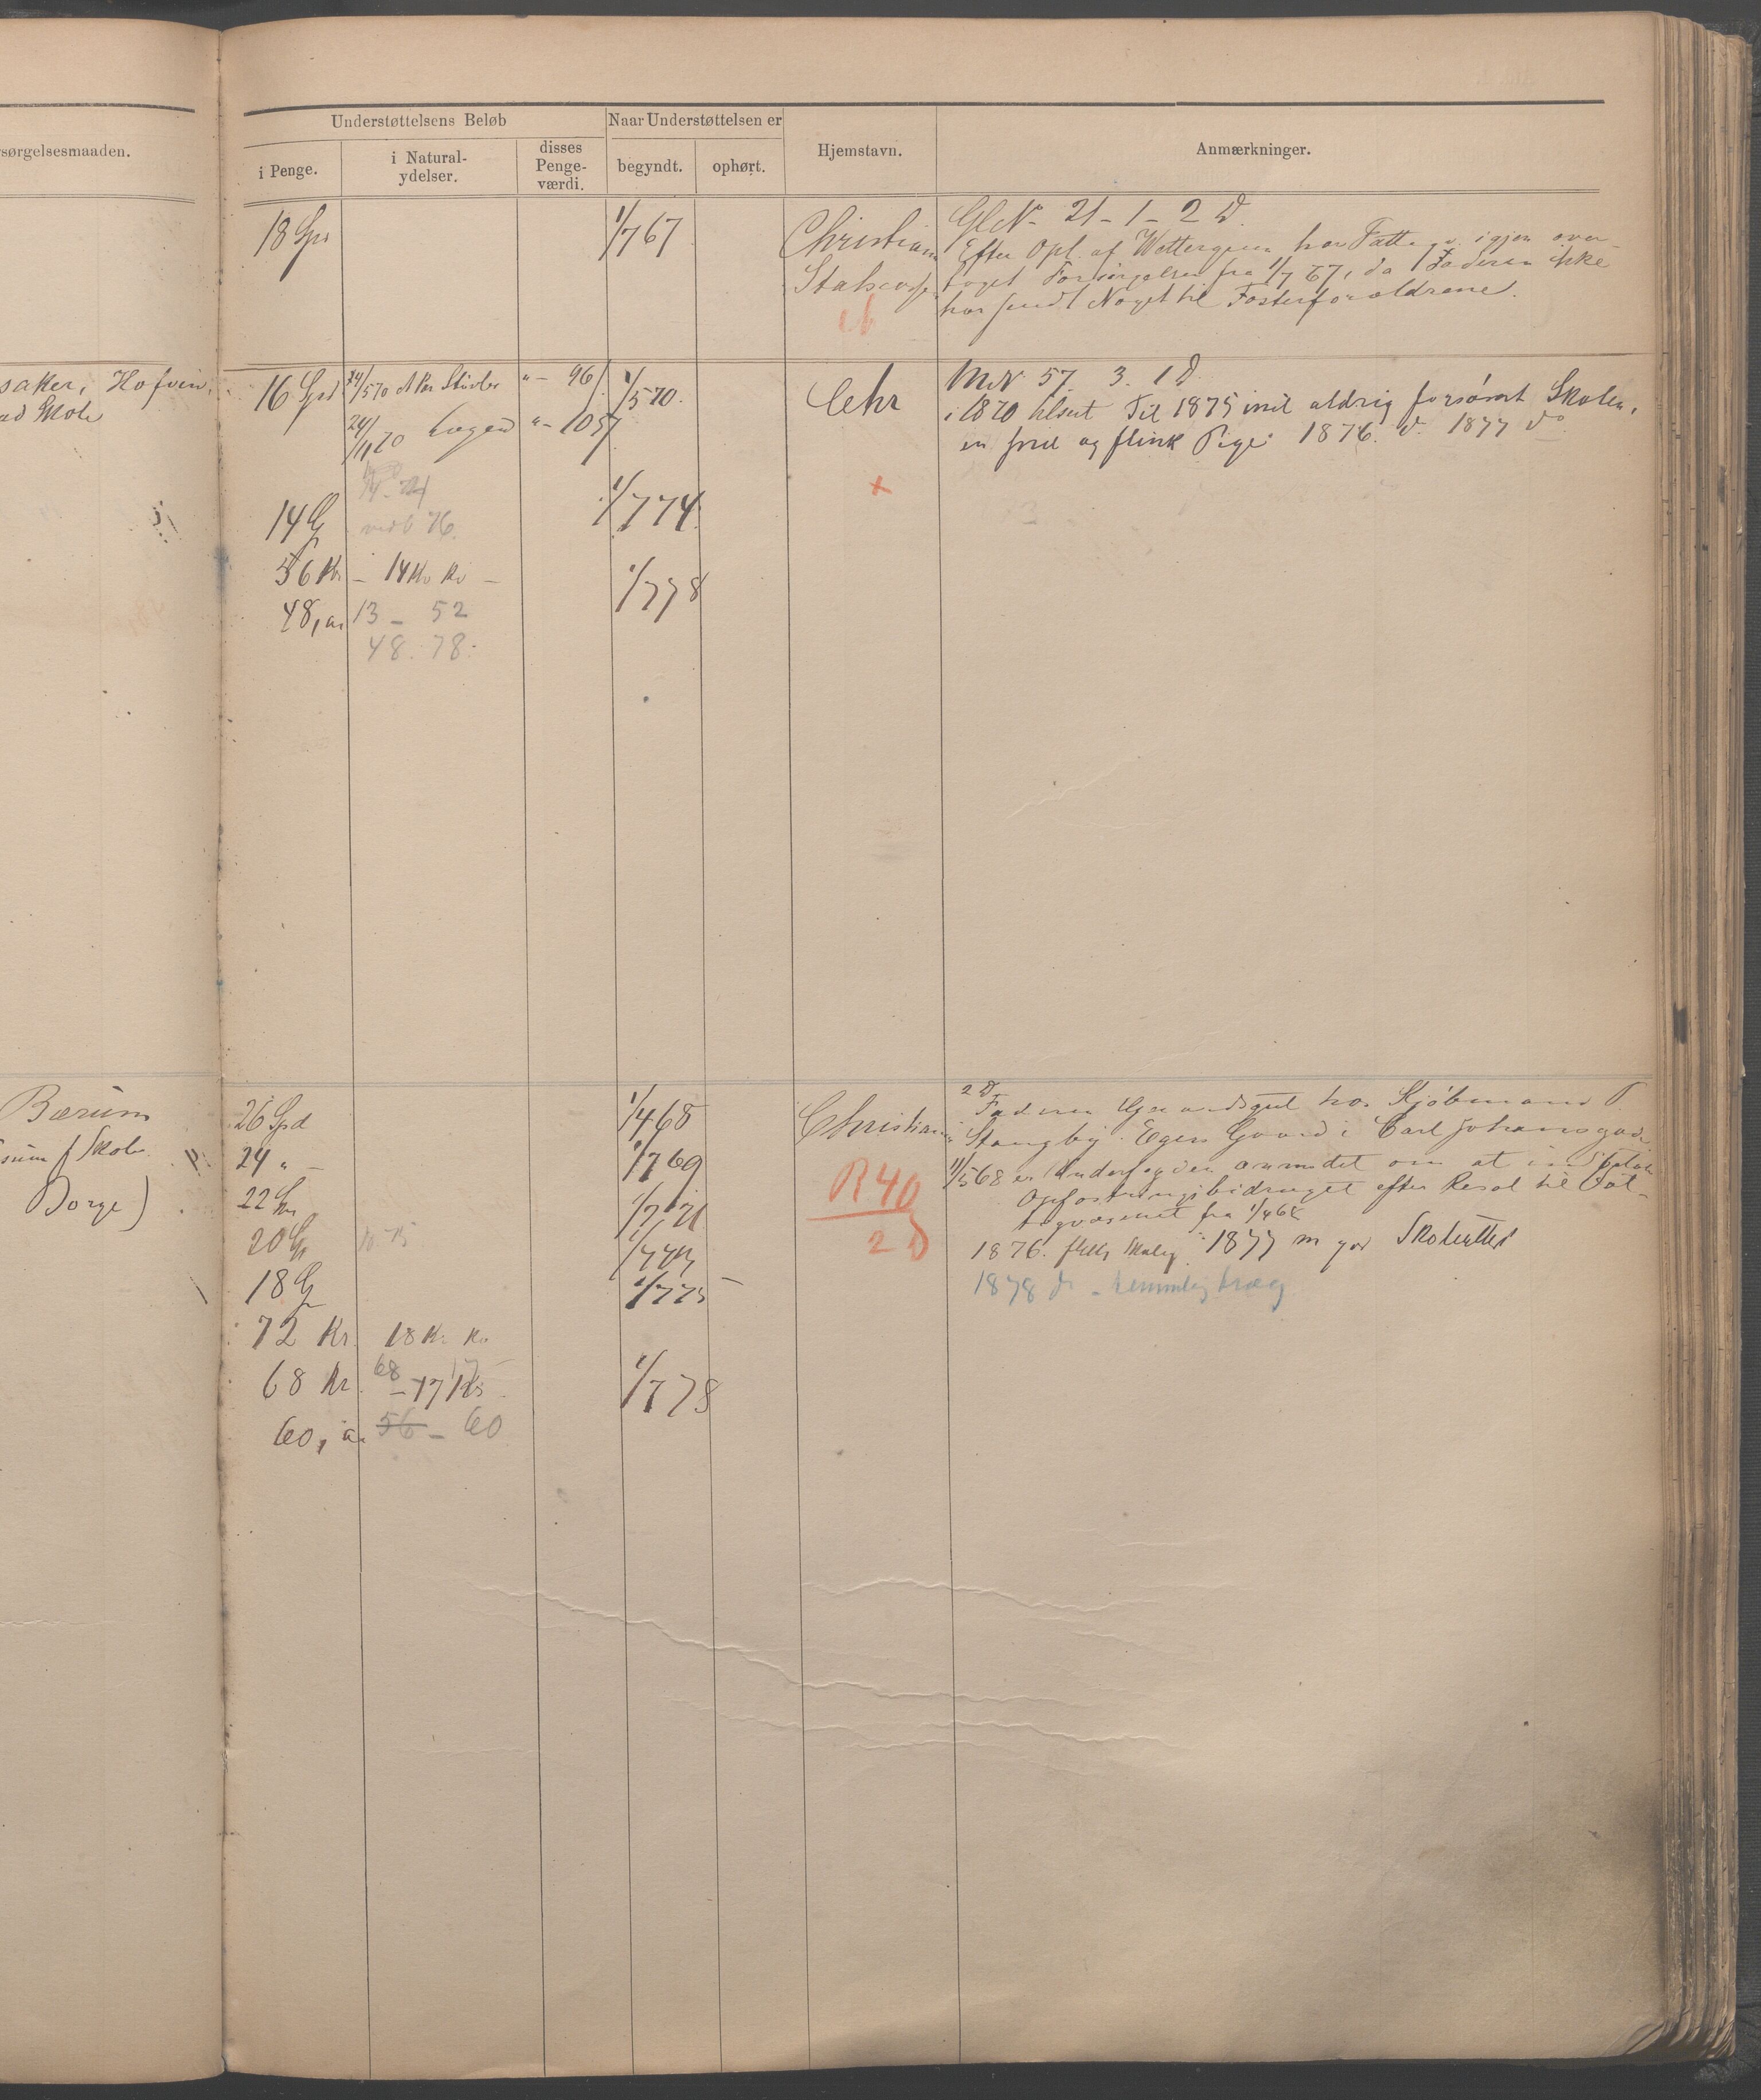 Understøttelsens Beløb
Naar Understøttelsen er
sørgelsesmaaden.
i Penge.
i Natural-
ydelser.
disses
Penge-
værdi.
begyndt.
ophørt.
Hjemstavn.
Anmærkninger.
18 Spd
1/7 67
Christiania
Gl No 21 - 1 - 2 D.
Efter Opl. af Wettergreen har Fattigv. igjen over-
taget Forsørgelsen fra 1/7 67, da Faderen ikke
har sendt Noget til Fosterforældrene.
saker, Hofvin
ad Skole
16 Spd
24/5 70 1 Par Støvler
" - 96
1/5 70.
Chr
M.N. 57. 3. 1 D
i 1870 Til 1875 inil aldrig forsømt Skolen,
en snil og flink Pige 1876. do. 1877 do.
24/11 70
" - 105
+
14 Sp
76.
1/7 74
56 Kr - 14 Kr Kv -
1/7 78
48, aar
13 - 52
48. 78.
Bærum
Skole
Borge)
26 Spd
1/4 68
Christiania
2 D
Faderen Gaardsgut hos Kjøbmand P.
Stangby. Egers Gaard i Carl Johansgade
24 " -
1/7 69
R 40
2 D
1/5 68 er Andersen anmodet om at indbetale
Opfostringsbidraget efter Resol til Fat-
tigvæsenet fra 1/4 68
22 Sp
1/7 71
20 Sp
1876. 1877 m god
1878 do -
18 Sp
1/7 75 -
72 Kr. 18 Kr Kv
68 Kr. 68 - 17 Kr
1/7 78
60, aa 56 - 60